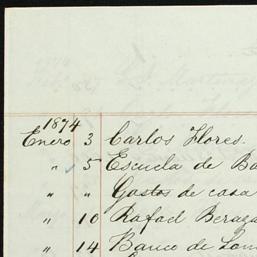 1874
Enero 3 Carlos Flores.
" 5 Escuela de
" " Gastos de casa
" 10 Rafael
" 14 Banco de